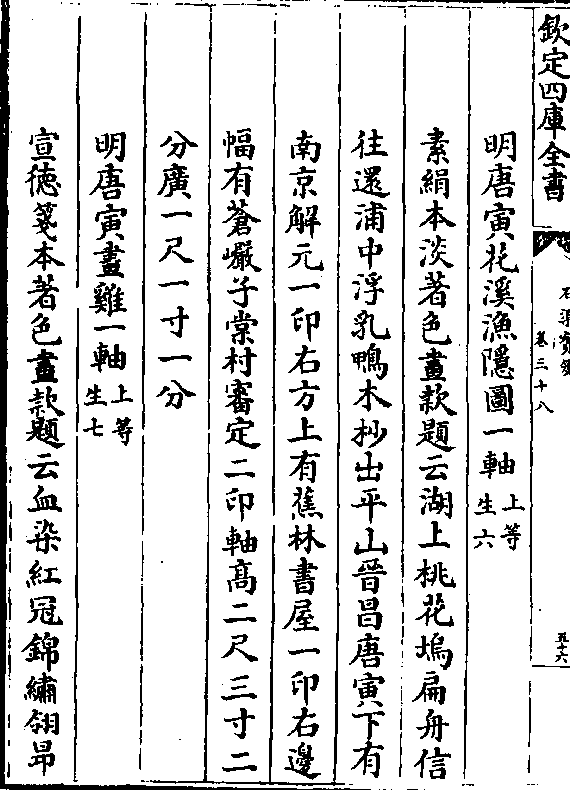 欽定四庫全書
卷三十八
五十六
明唐寅花溪漁隱圖一軸上等生六
素絹本淡著色畫款題云湖上桃花塢扁舟信
往還浦中浮乳鴨木杪出平山晉昌唐寅下有
南京解元一印右方上有蕉林書屋一印右邊
幅有蒼巖子棠村審定二印軸高二尺三寸二
分廣一尺一寸一分
明唐寅畫雞一軸上等生七
宣徳箋本著色畫款題云血染紅冠錦繡翎昂